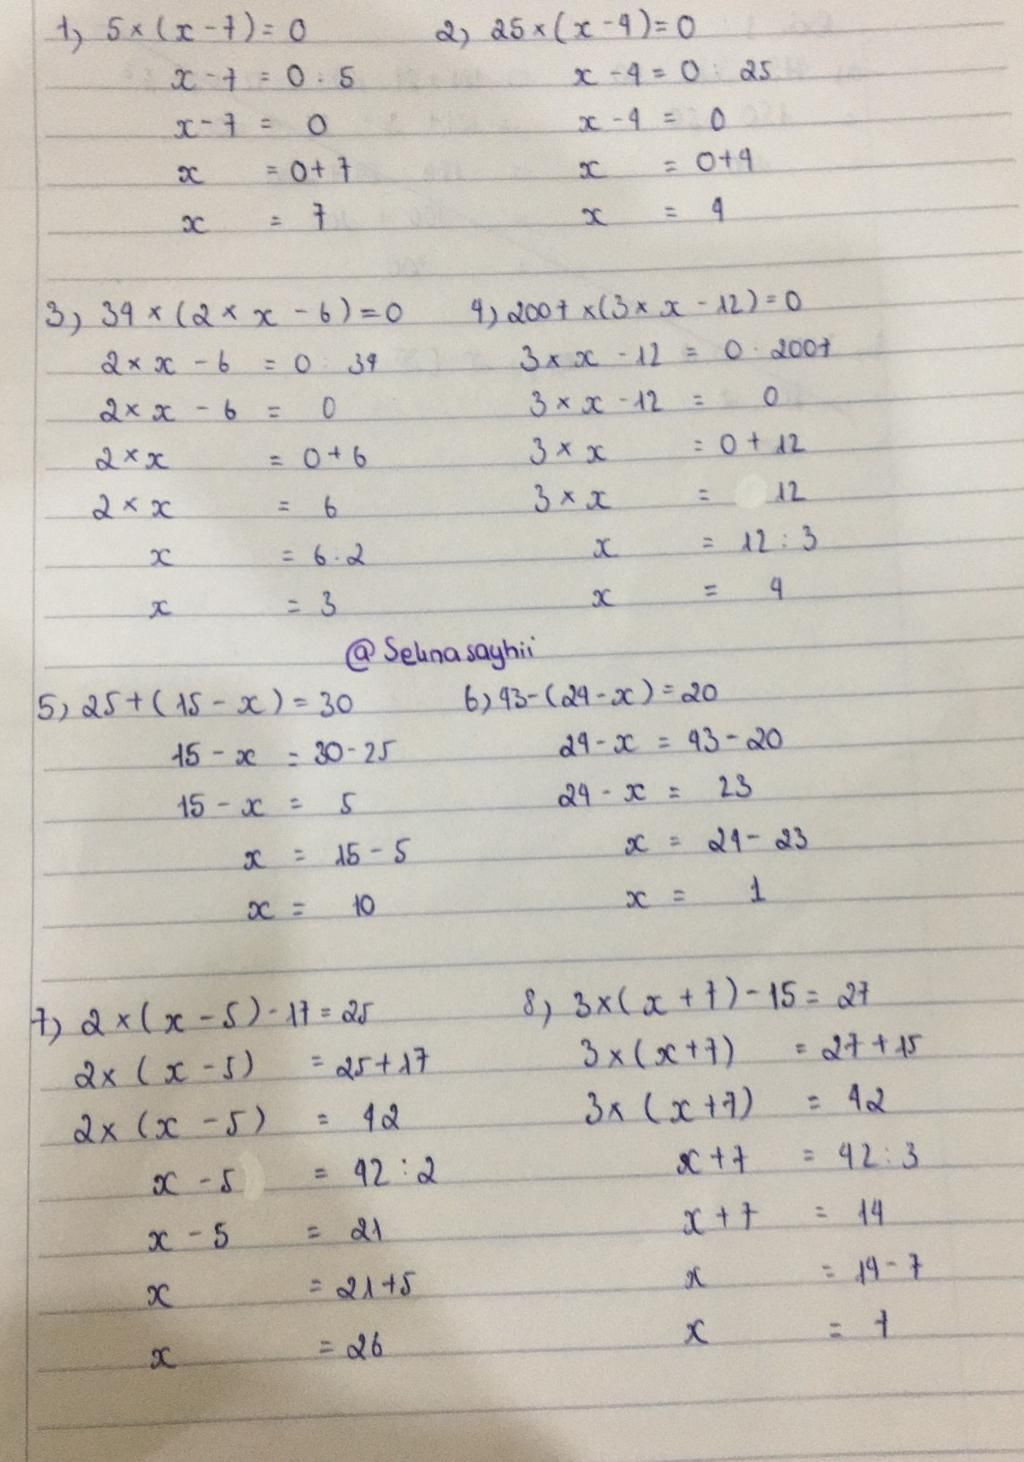 1) 5 × (x - 7) = 0
x - 7 = 0 : 5
x - 7 = 0
x = 0 + 7
x = 7
2) 25 × (x - 4) = 0
x - 4 = 0 : 25
x - 4 = 0
x = 0 + 4
x = 4
3) 34 × (2 × x - 6) = 0
2 × x - 6 = 0 : 34
2 × x - 6 = 0
2 × x = 0 + 6
2 × x = 6
x = 6 : 2
x = 3
4) 2007 × (3 × x - 12) = 0
3 × x - 12 = 0 : 2007
3 × x - 12 = 0
3 × x = 0 + 12
3 × x = 12
x = 12 : 3
x = 4
@Selinasayhii
5) 25 + (15 - x) = 30
15 - x = 30 - 25
15 - x = 5
x = 15 - 5
x = 10
6) 43 - (24 - x) = 20
24 - x = 43 - 20
24 - x = 23
x = 24 - 23
x = 1
7) 2 × (x - 5) - 17 = 25
2 × (x - 5) = 25 + 17
2 × (x - 5) = 42
x - 5 = 42 : 2
x - 5 = 21
x = 21 + 5
x = 26
8) 3 × (x + 7) - 15 = 27
3 × (x + 7) = 27 + 15
3 × (x + 7) = 42
x + 7 = 42 : 3
x + 7 = 14
x = 14 - 7
x = 7